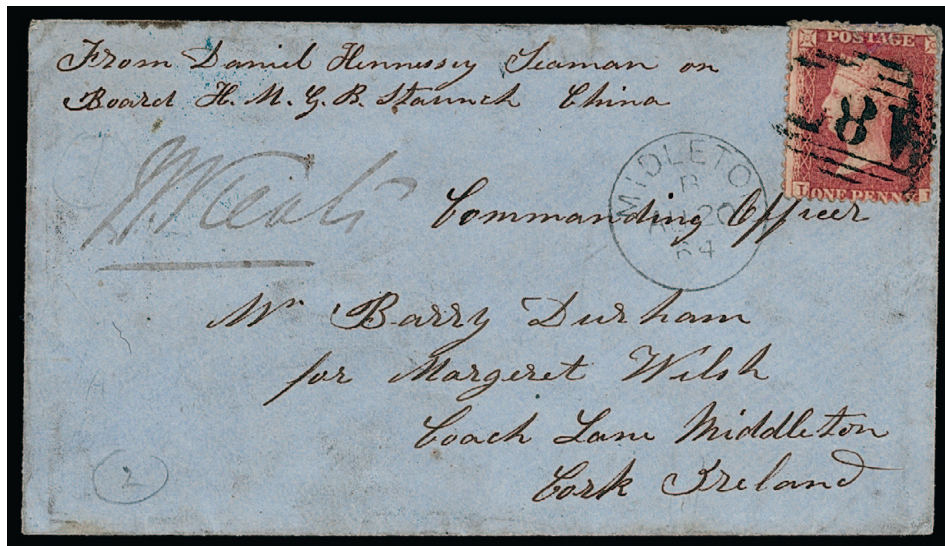 From Daniel Hennessey Seaman on
Board H. M. G. B. Staunch China
POSTAGE
B81
ONE PENNY
MIDLETON
B
AU 20
64
Commanding Officer
Mr Barry Durham
for Margeret Wilsh
Coach Lane Middleton
Cork Ireland
2